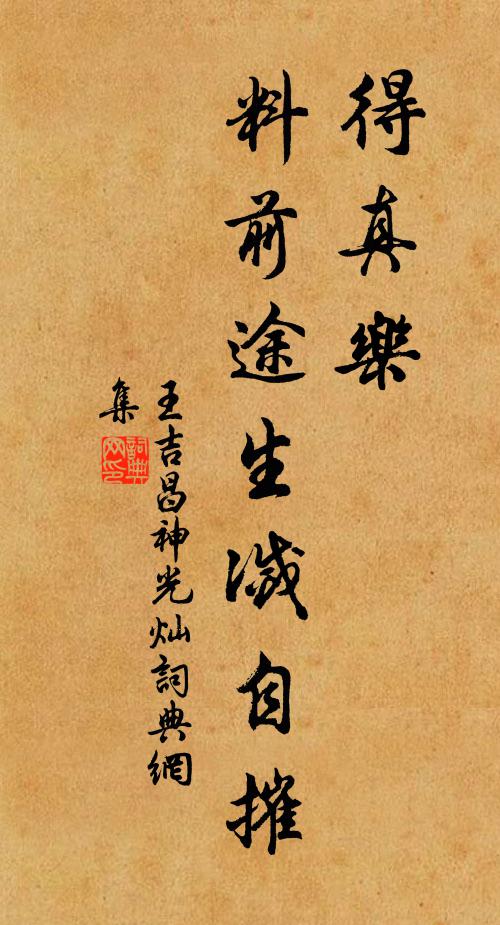 得真樂
料前途生滅自摧
王吉昌神光灿詞典網
集
詞典
网印